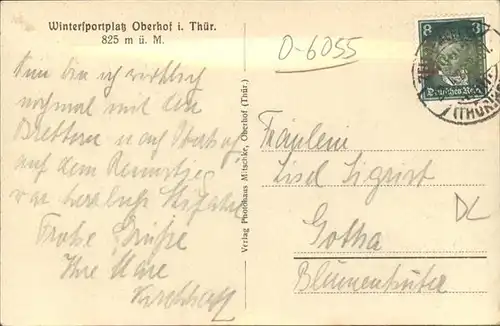 Wintersportplatz Oberhof i. Thür.
825 m ü. M.
Nun bin ich wirklich
nochmal mit den
Brettern n. auf Oberhof
auf dem Rennstieg
war herrlich
Frohe Grüße
Ihre
Verlag Photohaus Mitschke, Oberhof (Thür.)
O-6055
8 8
Deutsches Reich
(THÜRING
Fräulein
Lisel Sigrist
Gotha
DL